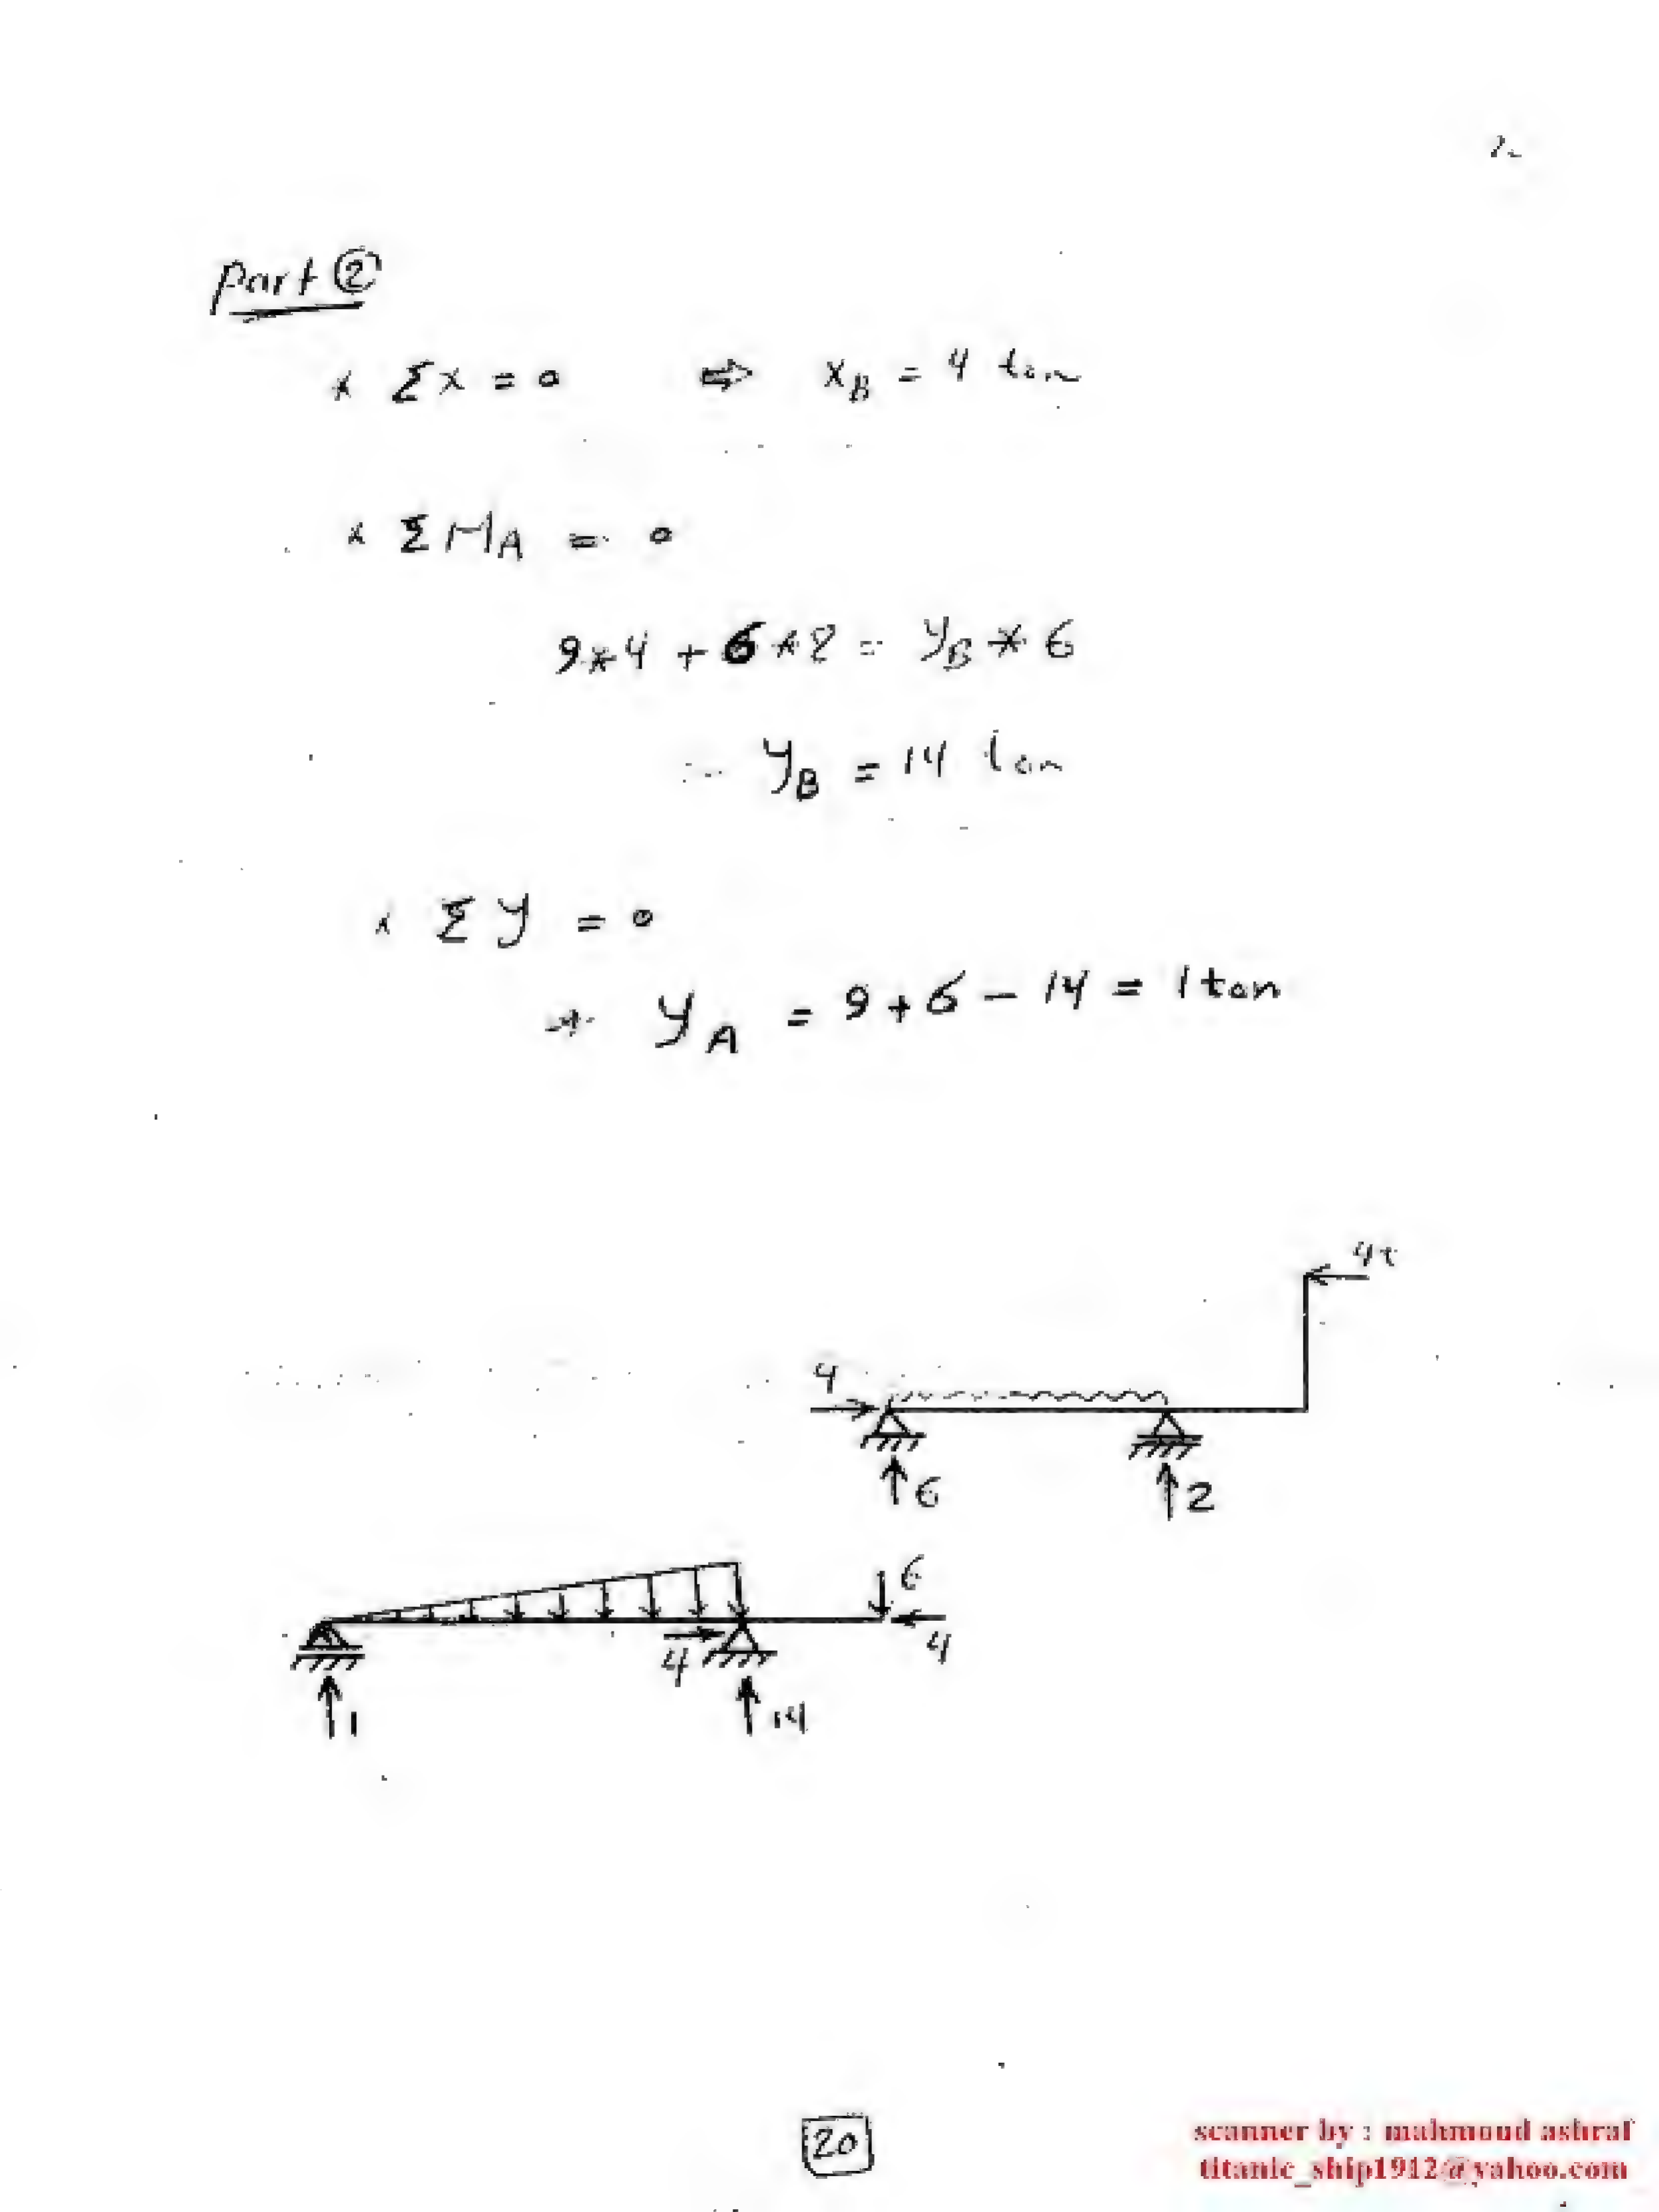 Part ②
* Σx = 0 ⇒ x_B = 4 ton
* ΣM_A = 0
9*4 + 6*8 = y_B * 6
∴ y_B = 14 ton
* Σy = 0
→ y_A = 9 + 6 - 14 = 1 ton
4t
4
6
2
6
4
4
1
14
20
scanner by : mahmoud ashraf
titanic_ship1912@yahoo.com